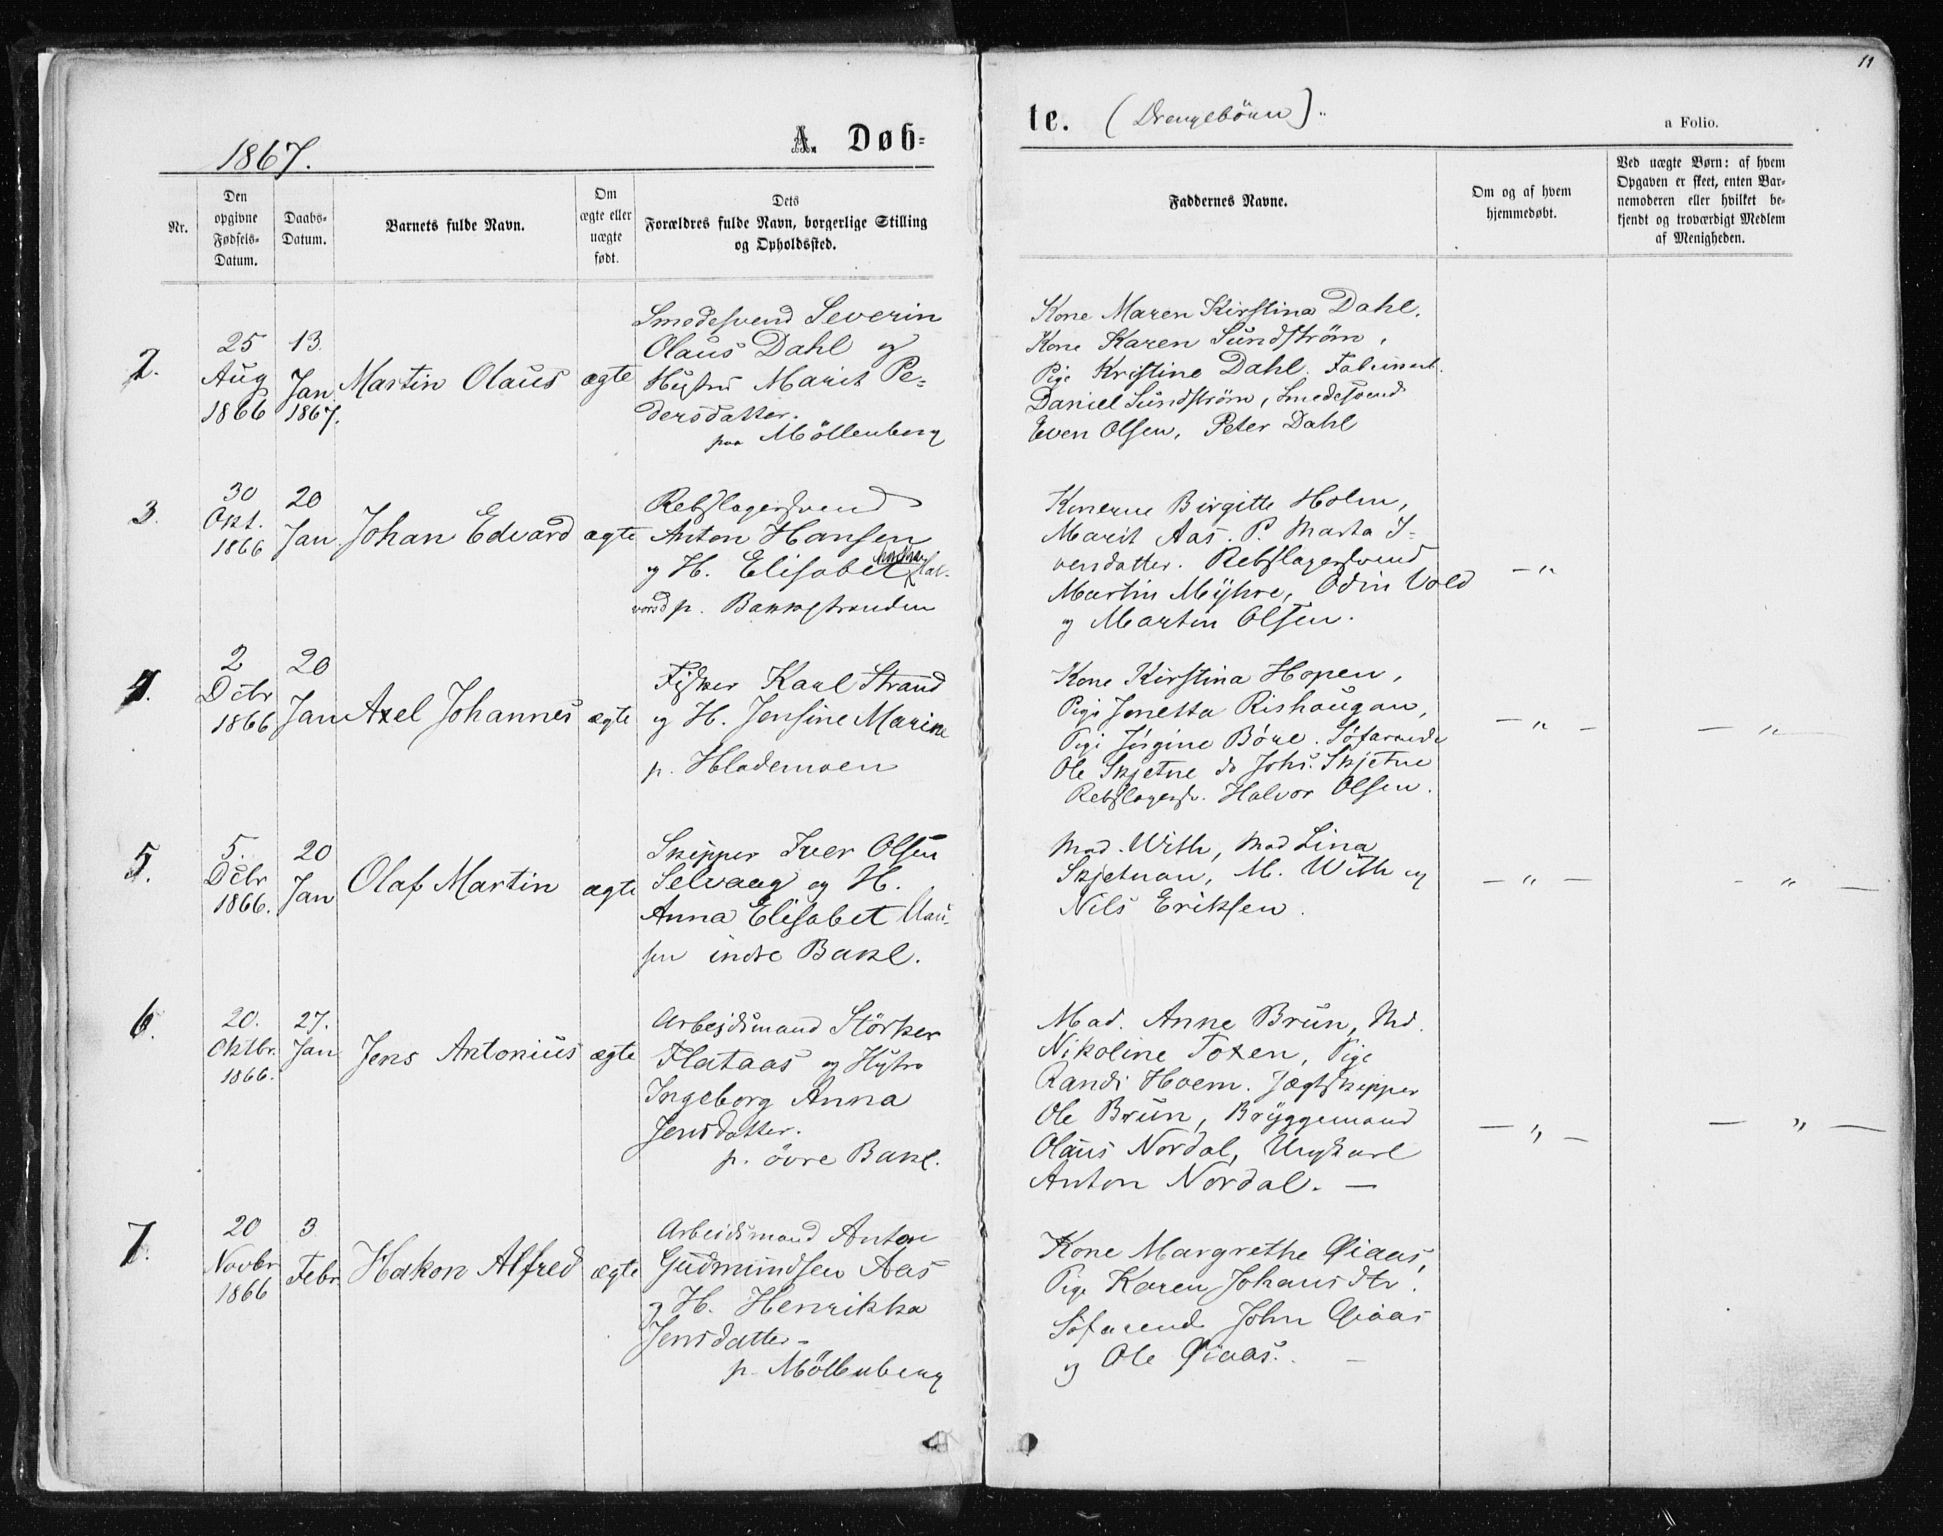 11
1867.
A. Døb=
te. (Drengebörn)..
a Folio.
Nr.
Den opgivne Fødsels-Datum.
Daabs-Datum.
Barnets fulde Navn.
Om ægte eller uægte født.
Dets Forældres fulde Navn, borgerlige Stilling og Opholdssted.
Faddernes Navne.
Om og af hvem hjemmedøbt.
Ved uægte Børn: af hvem Opgaven er skeet, enten Barnemoderen eller hvilket bekjendt og troværdigt Medlem af Menigheden.
2.
25 Aug 1866
13. Jan 1867.
Martin Olaus
ægte
Smedesvend Severin
Olaus Dahl og
Hustru Marit Pe-
dersdatter.
paa Möllenberg
Kone Maren Kirstina Dahl.
Kone Karen Sundström,
Pige Kristine Dahl. Fabrikarb.
Daniel Sundström, Smedesvend
Even Olsen, Peter Dahl
3.
30 Okt. 1866
20 Jan.
Johan Edvard
ægte
Rebslagersvend
Anton Hansen
og H. Elisabet Hal-
vorsd p. Bakkestranden
Konerne Birgitte Holm,
Marit Aas. P. Marta I-
versdatter. Rebslagersvend
Martin Myhre, Odin Vold
og Martin Olsen.
— „
4.
2 Dcbr 1866
20 Jan
Axel Johannes
ægte
Fisker Karl Strand
og H. Jensine Marie
p. Hlademoen
Kone Kirstina Hopen,
Pige Jonetta Rishaugan,
Pige Jörgine Böre. Söfarende
Ole Skjetne do Johs. Skjetne
Rebslagersv. Halvor Olsen.
— „ —
— „
5.
5. Dcbr 1866.
20 Jan
Olaf Martin
ægte
Skipper Iver Olsen
Selvaag og H.
Anna Elisabet Clau-
sen indre Bakl.
Mad. With, Mad Lina
Skjetnan, M. With og
Nils Eriksen.
— „ —
- „ —
6.
20. Oktbr. 1866.
27. Jan
Jens Antonius
ægte
Arbejdsmand Störker
Flataas og Hustro
Ingeborg Anna
Jensdatter.
p. övre Bakl.
Mad. Anne Brun, Md.
Nikoline Toxen, Pige
Randi Hoem. Jægtskipper
Ole Brun, Bryggemand
Olaus Nordal, Ungkarl
Anton Nordal. —
— „ —
— „ —
7.
20 Novbr 1866
3 Febr
Hakon Alfred
ægte
Arbeidsmand Anton
Gudmundsen Aas
og H. Henrikka
Jensdatter-
p. Möllenberg
Kone Margrethe Qiaas,
Pige Karen Johansdtr.
Söfarende John Qiaas
og Ole Qiaas. —